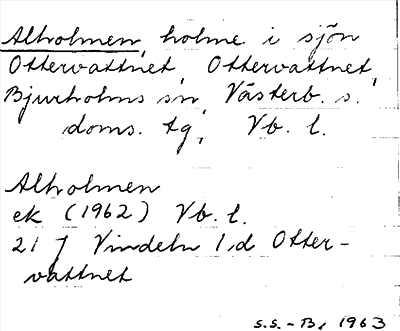 Alholmen, holme i sjön
Ottervattnet, Ottervattnet,
Bjurholms sn, Västerb. s.
doms. tg, Vb. l.
Alholmen
ek (1962) Vb. l.
21 J Vindeln 1,d Otter-
vattnet
S.S.-B, 1963